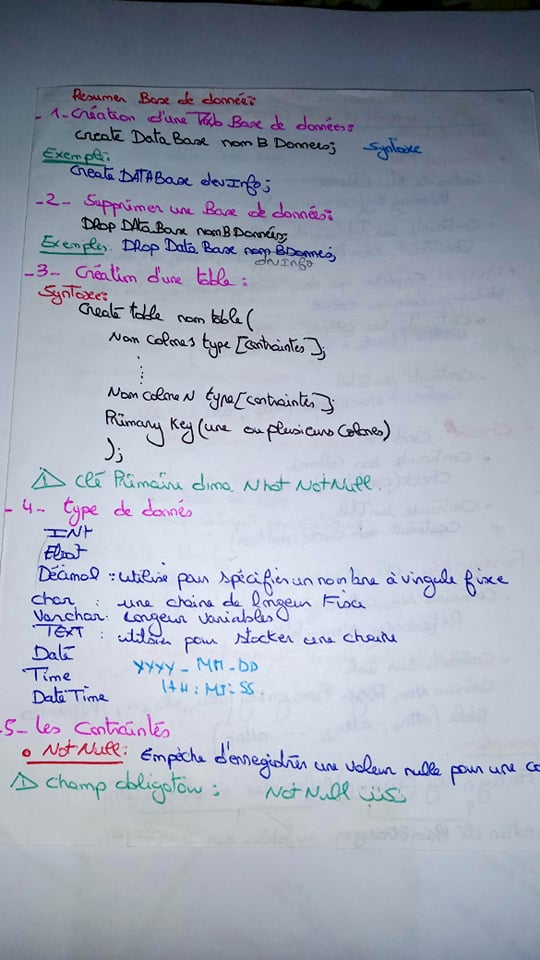 Resumer Base de données:
- 1- Création d'une Tab Base de données:
Create Data Base nom B Donnees; Syntaxe
Exemple:
Create DATABase devInfo;
-2- Supprimer une Base de données:
DRop DAta Base nom B Données;
Exemples. DRop Data Base nom BDonnes;
dvInfo
-3- Création d'une table :
Syntaxe:
Create table nom table (
Nom Colones type [contraintes];
Nom colone N type [contraintes];
Primary Key (une ou plusieurs Colones)
);
⚠ clé Primaire dima Nhot Not Null.
- 4- type de donnés
INt
Float
Décimal : utilise pour spécifier un nombre à virgule fixe
char : une chaine de longeur Fixe
Varchar: Longeur Variables
TEXT : utiliser pour stocker une chaine
Date
YYYY - MM - DD
Time
HH : MI : SS.
Date Time
-5- Les Contraintes
• Not Null: Empêche d'enregistrer une valeur nulle pour une co
⚠ Champ obligatoire : Not Null نكتب